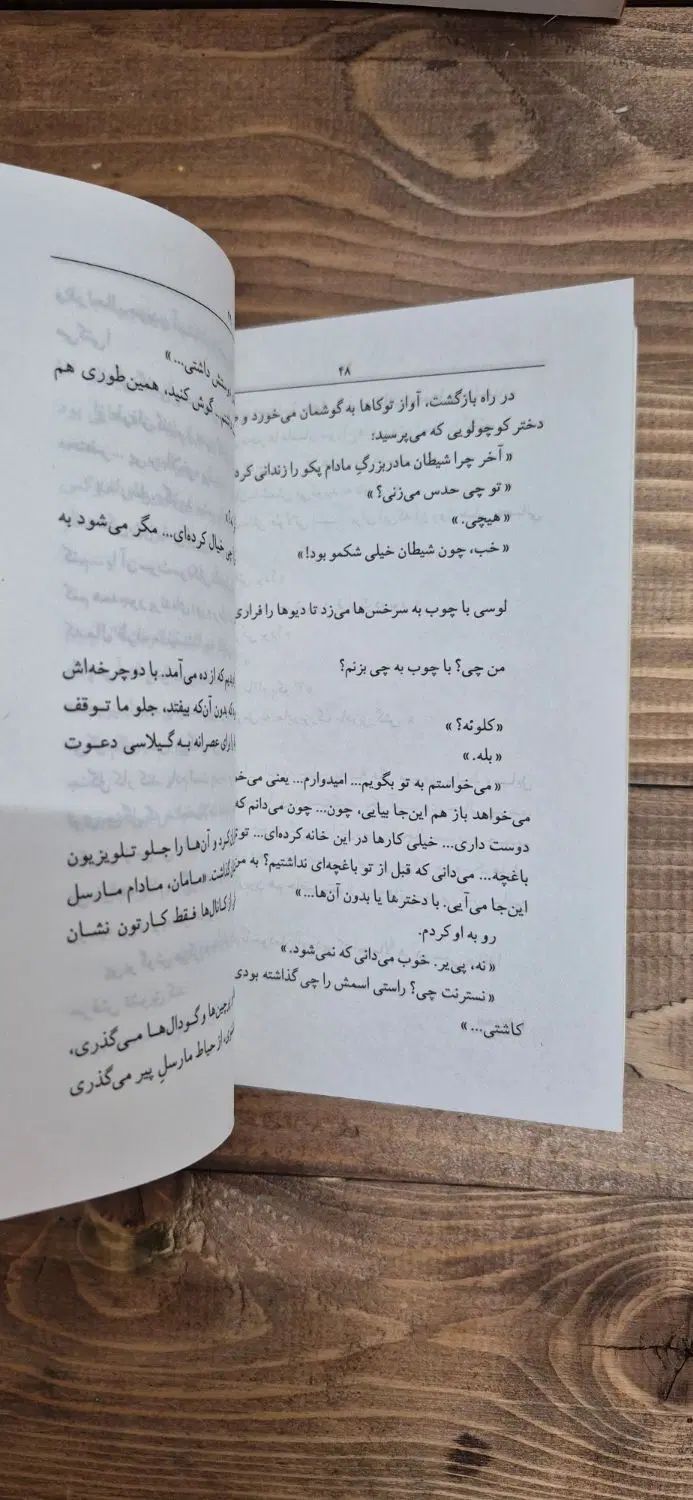 ۴۸
در راه بازگشت، آواز توکاها به گوشمان می‌خورد و
دختر کوچولویی که می‌پرسید:
« آخر چرا شیطان مادربزرگِ مادام پکو را زندانی کرد
« تو چی حدس می‌زنی؟ »
« هیچی. »
« خب، چون شیطان خیلی شکمو بود! »
لوسی با چوب به سرخس‌ها می‌زد تا دیوها را فراری
من چی؟ با چوب به چی بزنم؟
« کلوئه؟ »
« بله. »
« می‌خواستم به تو بگویم... امیدوارم... یعنی
می‌خواهد باز هم این‌جا بیایی، چون... چون می‌دانم که
دوست داری... خیلی کارها در این خانه کرده‌ای... تو
باغچه... می‌دانی که قبل از تو باغچه‌ای نداشتیم؟ به
این‌جا می‌آیی. با دخترها یا بدون آن‌ها... »
رو به او کردم.
« نه، پی‌یر. خوب می‌دانی که نمی‌شود. »
« نسترنت چی؟ راستی اسمش را چی گذاشته بودی
کاشتی... »
داشتی... »
گوش کنید، همین‌طوری هم
خیال کرده‌ای... مگر می‌شود به
که از ده می‌آمد. با دوچرخه‌اش
بدون آن‌که بیفتد، جلو ما توقف
برای عصرانه به گیلاسی دعوت
کرد و آن‌ها را جلو تلویزیون
گذاشت. «مامان، مادام مارسل
کانال‌ها فقط کارتون نشان
پرچین‌ها و گودال‌ها می‌گذری،
از حیاط مارسلِ پیر می‌گذری